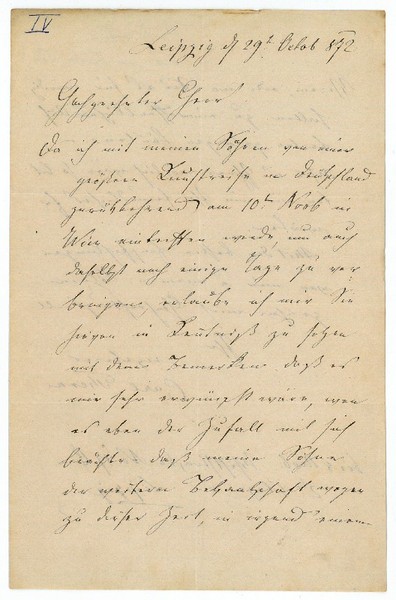 IV
Leipzig d 29t Octob 872
Hochgeehrter Herr
Da ich mit meinen Söhnen von einer
größern Kunstreise in Deutschland
zurückkehrend am 10t Novb in
Wien eintreffen werde, um auch
daselbst noch einige Tage zu ver
bringen erlaube ich mir Sie
hievon in Kentniß zu setzen
mit dem Bemerken daß es
mir sehr erwünscht wäre, wen
es eben der Zufall mit sich
brächte daß meine Söhne
der weitern Bekantschaft wegen
zu dieser Zeit, in irgend einem